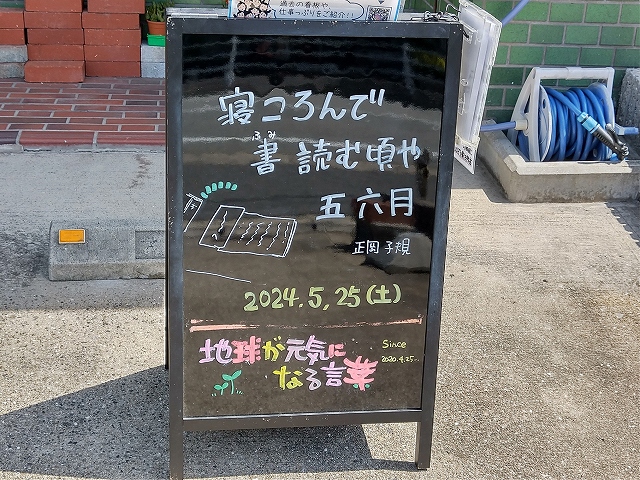 過去の看板や
仕事っぷりをご紹介!!
寝ころんで
ふみ
書読む頃や
五六月
正岡子規
2024.5.25(土)
地球が元気に
なる言葉
Since
2020.4.25...